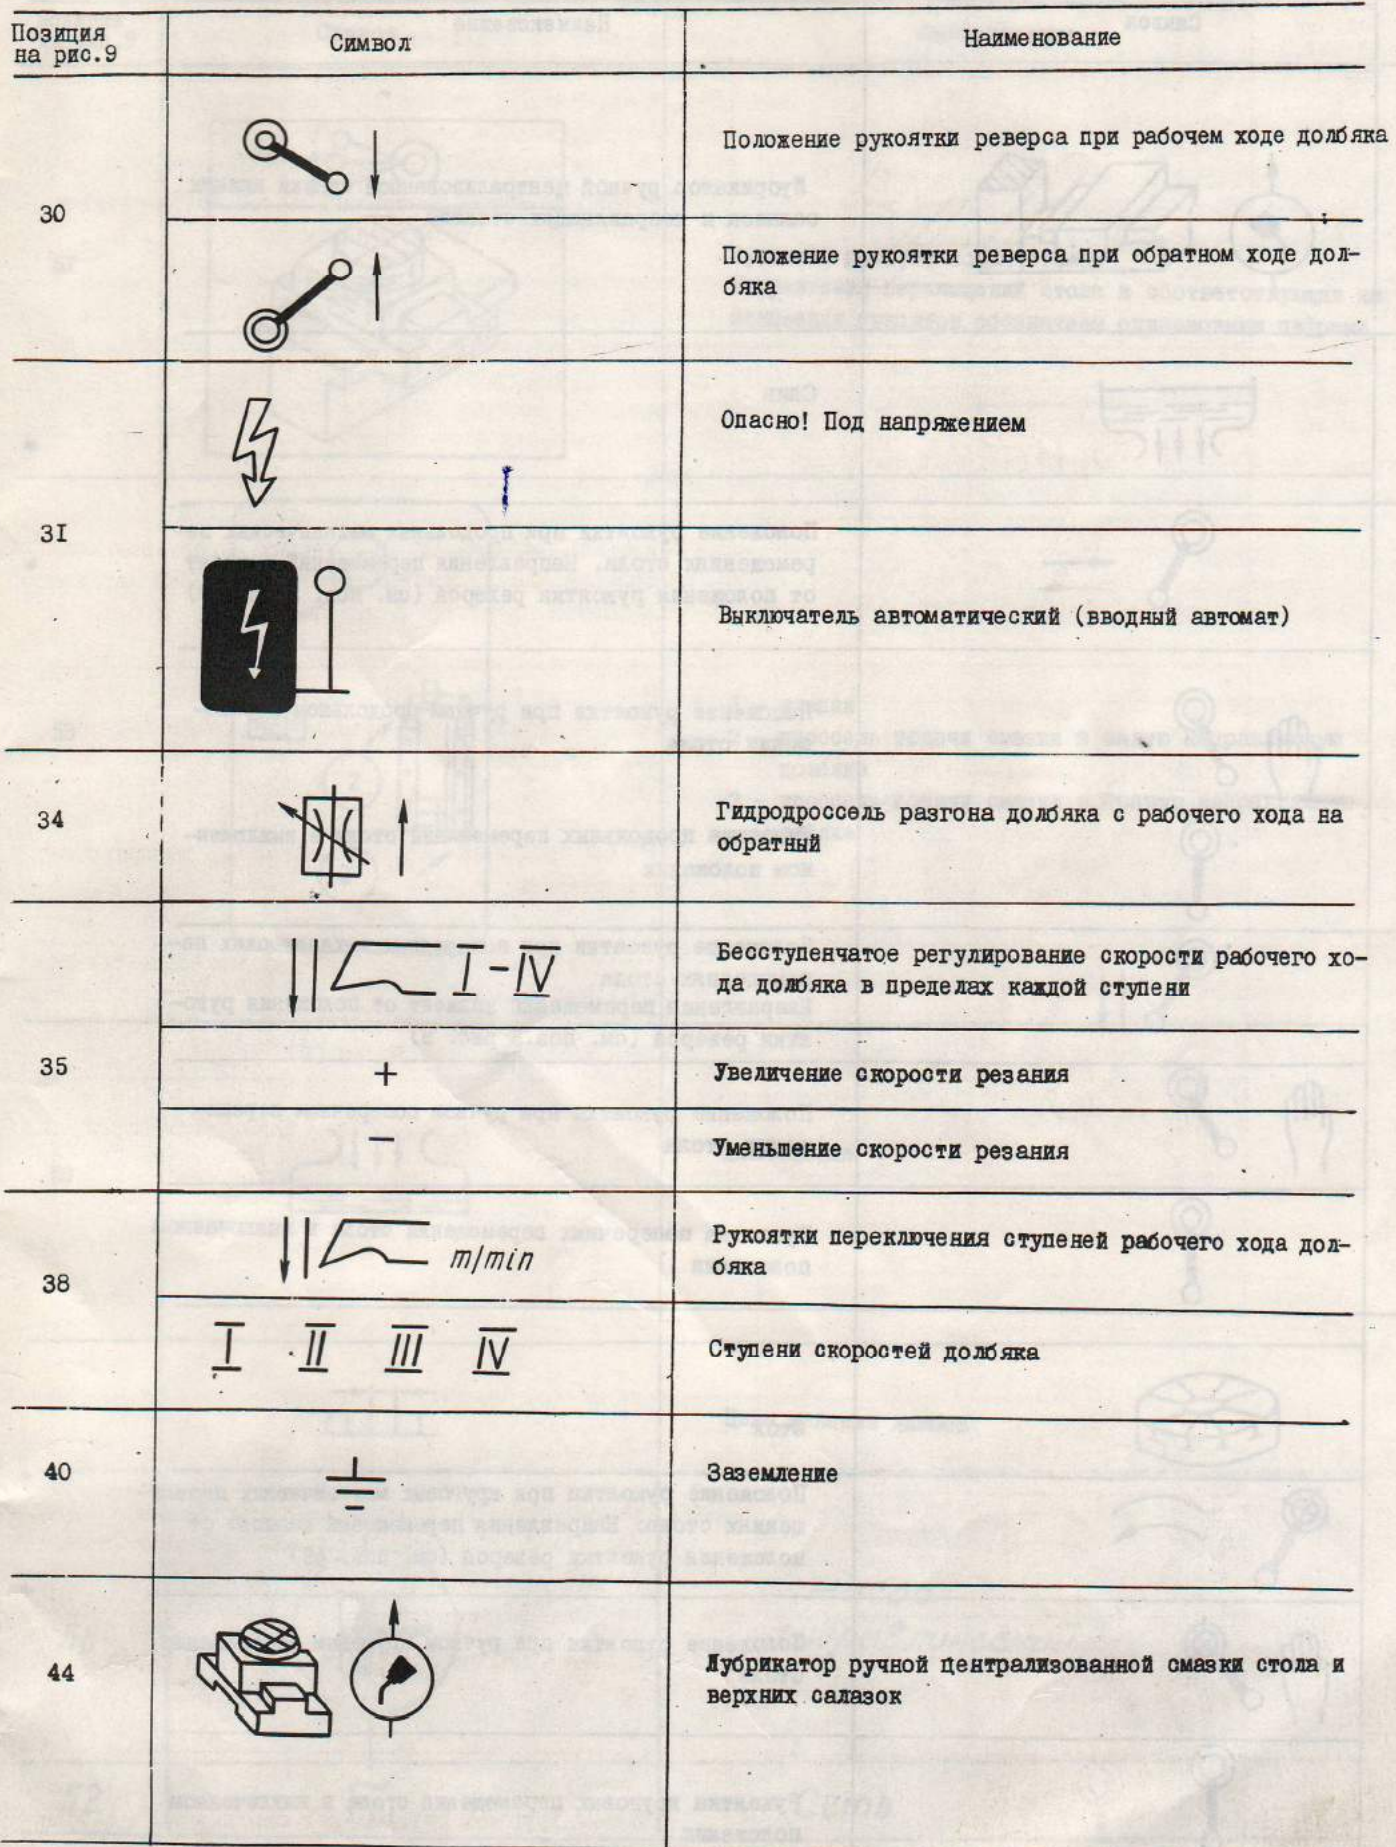 Позиция
на рис.9
Символ
Наименование
30
Положение рукоятки реверса при рабочем ходе долбяка
Положение рукоятки реверса при обратном ходе дол-
бяка
31
Опасно! Под напряжением
Выключатель автоматический (вводный автомат)
34
Гидродроссель разгона долбяка с рабочего хода на
обратный
35
I-IV
Бесступенчатое регулирование скорости рабочего хо-
да долбяка в пределах каждой ступени
+
Увеличение скорости резания
−
Уменьшение скорости резания
38
m/min
Рукоятки переключения ступеней рабочего хода дол-
бяка
I II III IV
Ступени скоростей долбяка
40
Заземление
44
Лубрикатор ручной централизованной смазки стола и
верхних салазок